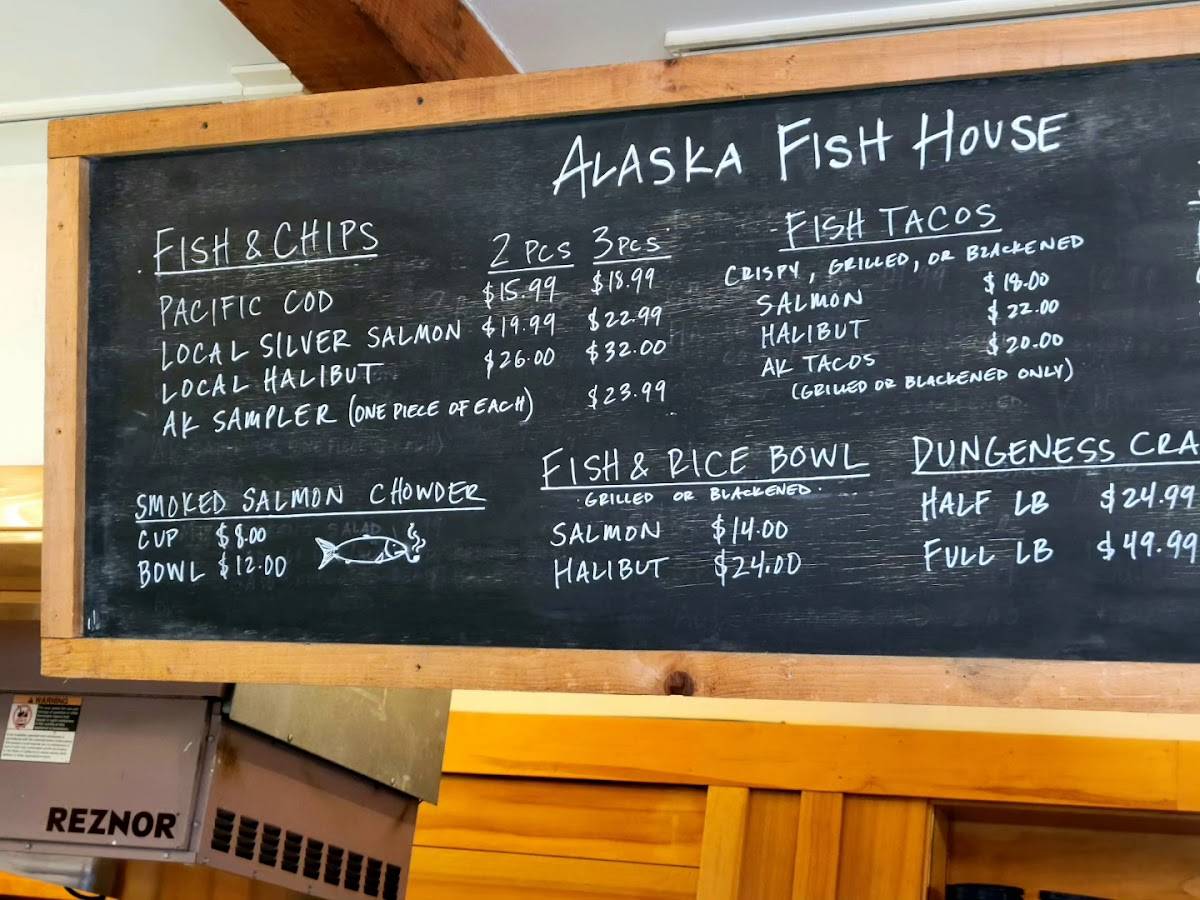 ALASKA FISH HOUSE
FISH & CHIPS 2 PCS 3 PCS
PACIFIC COD $15.99 $18.99
LOCAL SILVER SALMON $19.99 $22.99
LOCAL HALIBUT $26.00 $32.00
AK SAMPLER (ONE PIECE OF EACH) $23.99
SMOKED SALMON CHOWDER
CUP $8.00
BOWL $12.00
FISH TACOS
CRISPY, GRILLED, OR BLACKENED
SALMON $18.00
HALIBUT $22.00
AK TACOS $20.00
(GRILLED OR BLACKENED ONLY)
FISH & RICE BOWL
GRILLED OR BLACKENED
SALMON $14.00
HALIBUT $24.00
DUNGENESS CRA
HALF LB $24.99
FULL LB $49.99
WARNING
REZNOR